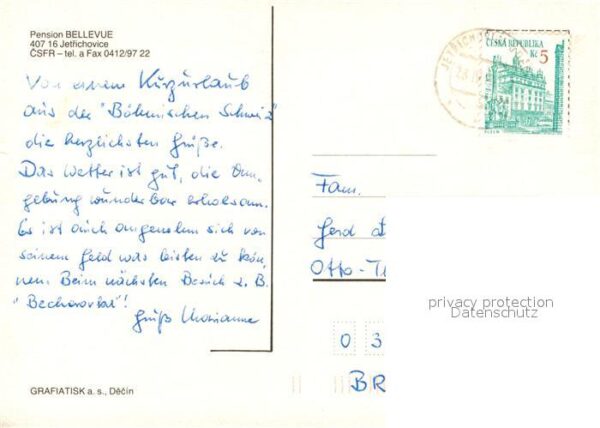 Pension BELLEVUE
407 16 Jetřichovice
ČSFR – tel. a Fax 0412/97 22
Von einem Kurzurlaub
aus der "Böhmischen Schweiz"
die herzlichsten Grüße.
Das Wetter ist gut, die Um-
gebung wunderbar erholsam.
Es ist auch angenehm sich von
seinem Geld was leisten zu kön-
nen. Beim nächsten Besuch z. B.
"Becherovka"!
Gruß Marianne
GRAFIATISK a. s., Děčín
ČESKÁ REPUBLIKA
Kč 5
PLZEŇ
Fam.
Gerd
Otto-
0 3
BR
privacy protection
Datenschutz